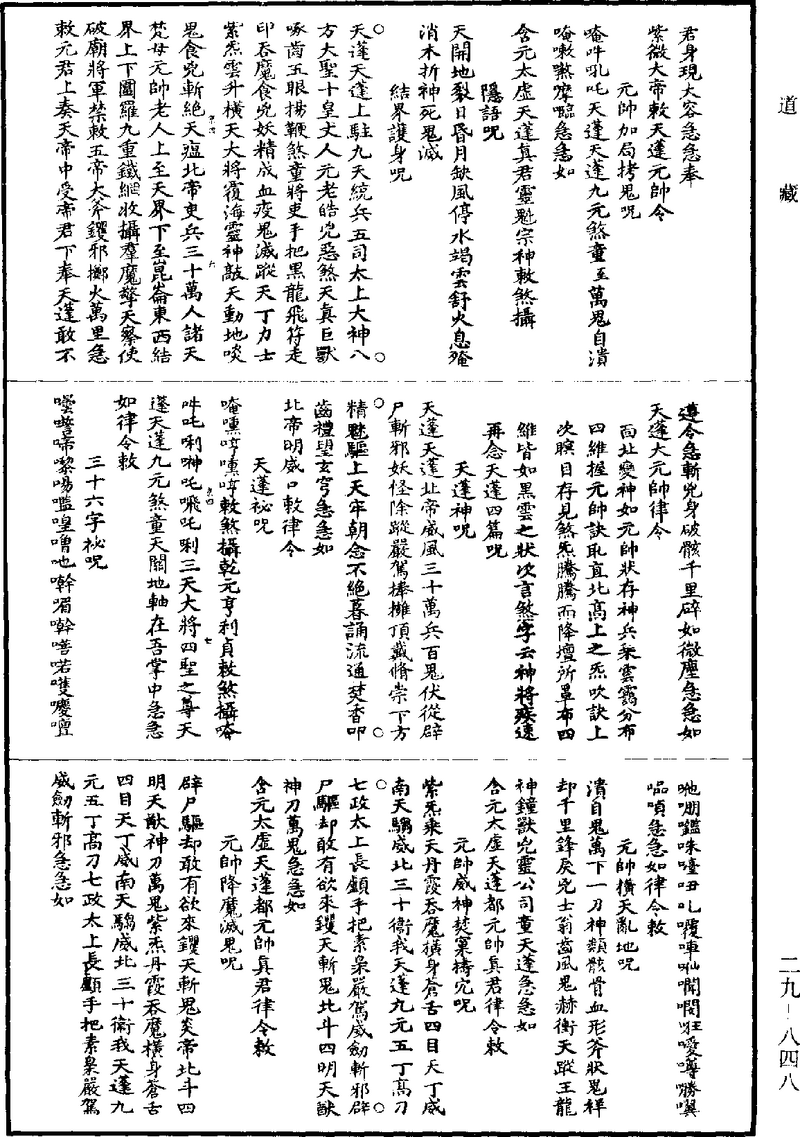 道藏
君身現大容急急奉
紫微大帝敕天蓬元帥令
元帥加局拷鬼呪
唵吽吼吒天蓬天蓬九元煞童至萬鬼自潰
唵嗽煞摩𪡀急急如
含元太虛天蓬真君靈魁宗神敕煞攝
隱語呪
天開地裂日昏月缺風停水竭雲舒火息殗
消木折神死鬼滅
結界護身呪
天蓬天蓬上駐九天統兵五司太上大神八
方大聖十皇丈人元老皓兇惡煞天真巨獸
啄齒五眼揚鞭煞童將吏手把黑龍飛符走
印吞魔食兇妖精成血疫鬼滅蹤天丁力士
紫炁雲升橫天大將覆海靈神敲天動地啖
鬼食兇斬絕天瘟北帝吏兵三十萬人諸天
梵母元帥老人上至天界下至崑崙東西結
界上下圍羅九重鐵網收攝羣魔擎天察使
破廟將軍禁敕五帝大斧钁邪擲火萬里急
敕元君上奏天帝中受帝君下奉天蓬敢不
遵令急斬兇身破骸千里碎如微塵急急如
天蓬大元帥律令
面北變神如元帥狀存神兵乘雲靄分布
四維握元帥訣取直北高上之炁吹訣上
次瞑目存見煞炁騰騰而降壇所罩布四
維皆如黑雲之狀次言煞字云神將疾速
再念天蓬四篇呪
天蓬神呪
天蓬天蓬北帝威風三十萬兵百鬼伏從辟
尸斬邪妖怪除蹤嚴駕棒摧頂戴脩崇下方
精魅驅上天牢朝念不絕暮誦流通焚香叩
齒禮望玄穹急急如
北帝明威口敕律令
天蓬祕呪
唵㗲哼㗲哼敕煞攝乾元亨利貞敕煞攝唵
吽吒唎呻吒飛吒唎三天大將四聖之尊天
蓬天蓬九元煞童天關地軸在吾掌中急急
如律令敕
三十六字祕呪
嚕啼嚟喝嚂喤嘈吔𠹳喟𠹳噾喏嚄噳嚪
嘔嗊急急如律令敕
元帥橫天亂地呪
潰自鬼萬下一刀神類骸骨血形斧狀鬼祥
却千里鋒戾兇士翁齒風鬼赫衝天蹤王龍
神鐘獸兇靈公司童天蓬急急如
含元太虛天蓬都元帥真君律令敕
元帥威神焚窠擣穴呪
紫炁乘天丹霞吞魔橫身蒼舌四目天丁威
南天騶威北三十衞我天蓬九元五丁高刀
七政太上長顱手把素梟嚴駕威劍斬邪辟
尸驅却敢有欲來钁天斬鬼北斗四明天猷
神刀萬鬼急急如
含元太虛天蓬都元帥真君律令敕
元帥降魔滅鬼呪
辟尸驅却敢有欲來钁天斬鬼炎帝北斗四
明天猷神刀萬鬼紫炁丹霞吞魔橫身蒼舌
四目天丁威南天騶威北三十衞我天蓬九
元五丁高刀七政太上長顱手把素梟嚴駕
威劍斬邪急急如
二九—八四八